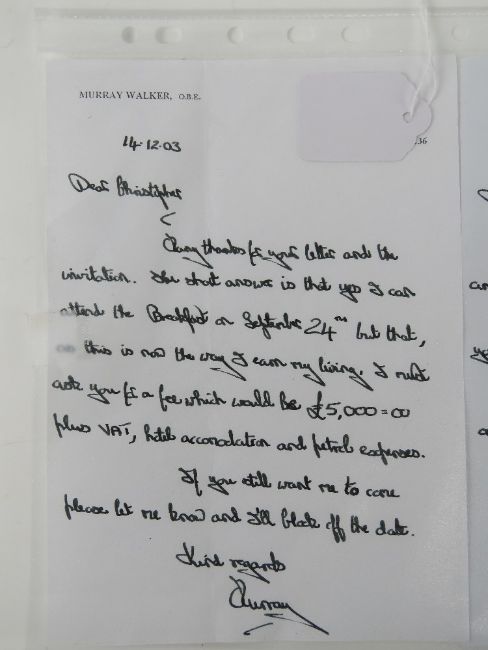 MURRAY WALKER, O.B.E.
36
14-12-03
Dear Christopher
Many thanks for your letter and the
invitation. The short answer is that yes I can
attend the Breakfast on September 24th but that,
as this is now the way I earn my living, I must
ask you for a fee which would be £5,000=00
plus VAT, hotel accomodation and petrol expenses.
If you still want me to come
please let me know and I'll block off the date.
Kind regards
Murray